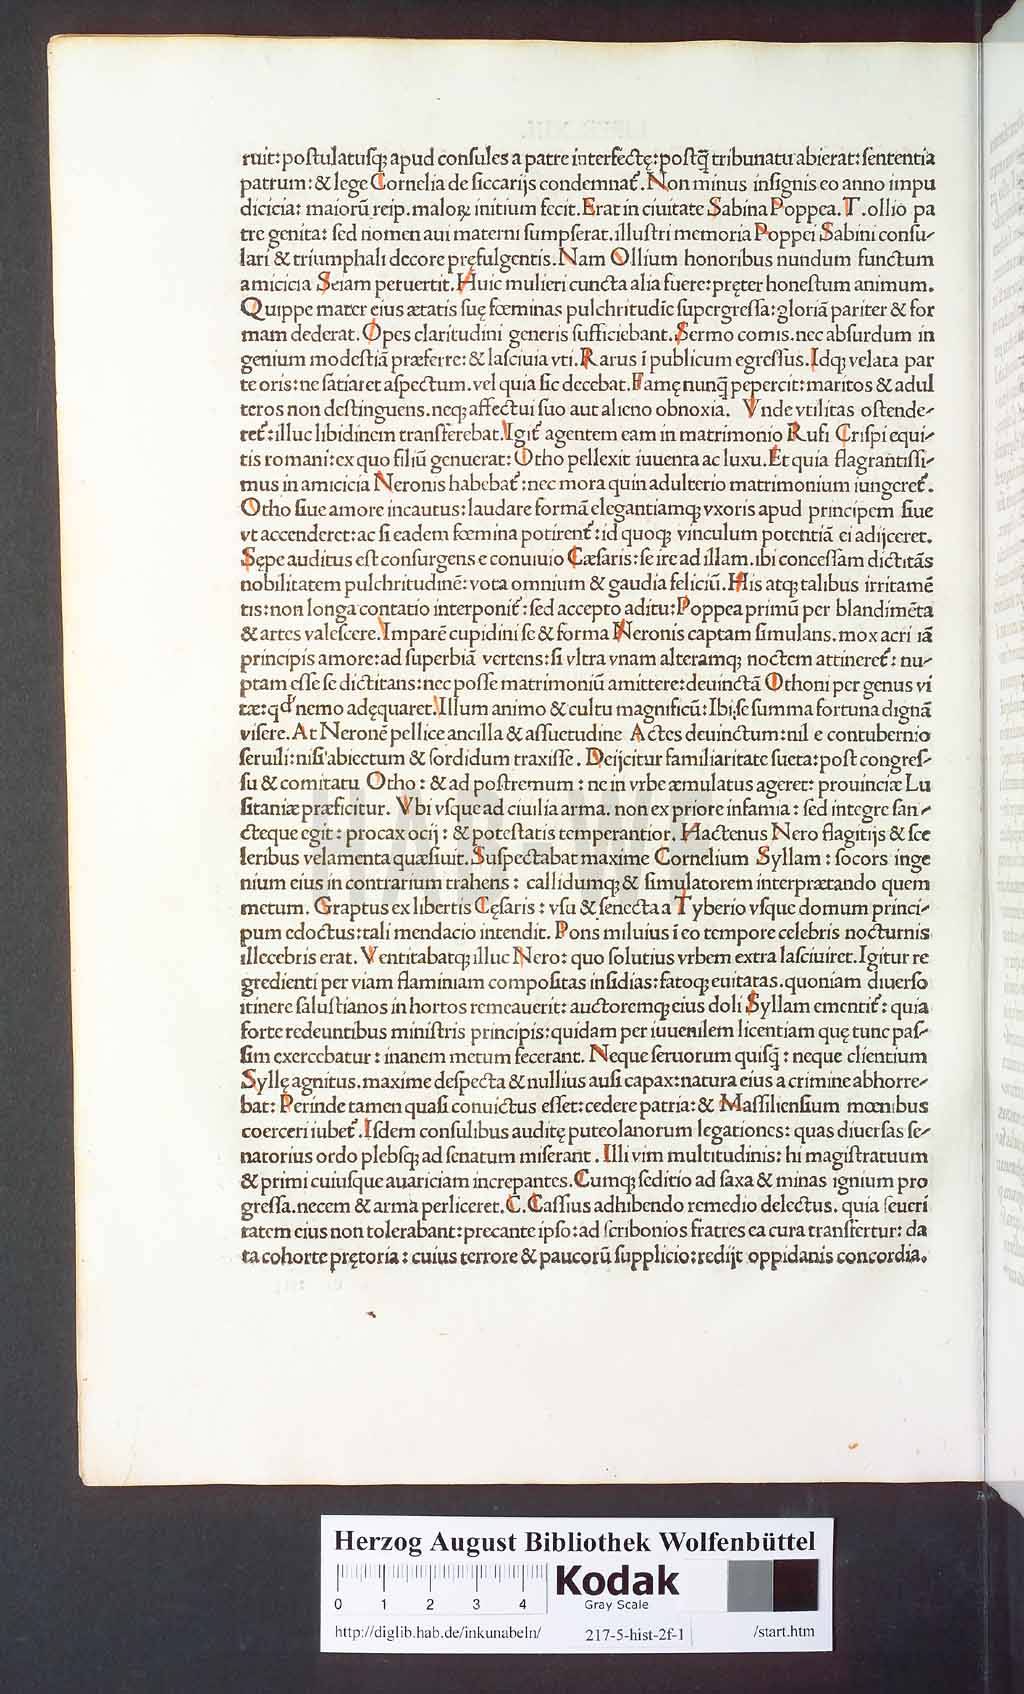 ruit: poſtulatuſqꝫ apud conſules a patre interfectę: poſtq̃ tribunatu abierat: ſententia
patrum: & lege Cornelia de ſiccarijs condemnat᷑. Non minus inſignis eo anno impu
dicicia: maiorū reip. maloꝝ initium fecit. Erat in ciuitate Sabina Poppea. T. ollio pa
tre genita: ſed nomen aui materni ſumpſerat. illuſtri memoria Poppei Sabini conſu-
lari & triumphali decore pręfulgentis. Nam Ollium honoribus nundum functum
amicicia Seiam peruertit. Huic mulieri cuncta alia fuere: pręter honeſtum animum.
Quippe mater eius ætatis ſuę fœminas pulchritudīe ſupergreſſa: gloriā pariter & for
mam dederat. Opes claritudini generis ſufficiebant. Sermo comis. nec abſurdum in
genium modeſtiā præferre: & laſciuia vti. Rarus ī publicum egreſſus. Idqꝫ velata par
te oris: ne ſatiaret aſpectum. vel quia ſic decebat. Famę nunq̃ pepercit: maritos & adul
teros non deſtinguens. neqꝫ affectui ſuo aut alieno obnoxia. Vnde vtilitas oſtende-
ret᷑: illuc libidinem tranſferebat. Igit᷑ agentem eam in matrimonio Rufi Criſpi equi-
tis romani: ex quo filiū genuerat: Otho pellexit iuuenta ac luxu. Et quia flagrantiſſi-
mus in amicicia Neronis habebat᷑: nec mora quin adulterio matrimonium iungeret᷑.
Otho ſiue amore incautus: laudare formā elegantiamqꝫ vxoris apud principem ſiue
vt accenderet: ac ſi eadem fœmina potirent᷑: id quoqꝫ vinculum potentiā ei adijceret.
Sępe auditus eſt conſurgens e conuiuio Cæſaris: ſe ire ad illam. ibi conceſſam dictitās
nobilitatem pulchritudinē: vota omnium & gaudia feliciū. His atqꝫ talibus irritamē
tis: non longa contatio interponit᷑: ſed accepto aditu: Poppea primū per blandimēta
& artes valeſcere. Imparē cupidini ſe & forma Neronis captam ſimulans. mox acri iā
principis amore: ad ſuperbiā vertens: ſi vltra vnam alteramqꝫ noctem attineret᷑: nu-
ptam eſſe ſe dictitans: nec poſſe matrimoniū amittere: deuinctā Othoni per genus vi
tæ: qđ nemo adęquaret. Illum animo & cultu magnificū: Ibi ſe ſumma fortuna dignā
viſere. At Neronē pellice ancilla & aſſuetudine Actes deuinctum: nil e contubernio
ſeruili: niſi abiectum & ſordidum traxiſſe. Deijcitur familiaritate ſueta: poſt congreſ-
ſu & comitatu Otho: & ad poſtremum: ne in vrbe æmulatus ageret: prouinciæ Lu
ſitaniæ præficitur. Vbi vſque ad ciuilia arma. non ex priore infamia: ſed integre ſan-
cteque egit: procax ocij: & poteſtatis temperantior. Hactenus Nero flagitijs & ſce
leribus velamenta quæſiuit. Suſpectabat maxime Cornelium Syllam: ſocors inge
nium eius in contrarium trahens: callidumqꝫ & ſimulatorem interprætando quem
metum. Graptus ex libertis Cęſaris: vſu & ſenecta a Tyberio vſque domum princi-
pum edoctus: tali mendacio intendit. Pons miluius ī eo tempore celebris nocturnis
illecebris erat. Ventitabatqꝫ illuc Nero: quo ſolutius vrbem extra laſciuiret. Igitur re
gredienti per viam flaminiam compoſitas inſidias: fatoqꝫ euitatas. quoniam diuerſo
itinere ſaluſtianos in hortos remeauerit: auctoremqꝫ eius doli Syllam ementit᷑: quia
forte redeuntibus miniſtris principis: quidam per iuuenilem licentiam quę tunc paſ-
ſim exercebatur: inanem metum fecerant. Neque ſeruorum quiſq̃: neque clientium
Syllę agnitus. maxime deſpecta & nullius auſi capax: natura eius a crimine abhorre-
bat: Perinde tamen quaſi conuictus eſſet: cedere patria: & Maſſilienſium mœnibus
coerceri iubet᷑. Iſdem conſulibus auditę puteolanorum legationes: quas diuerſas ſe-
natorius ordo plebſqꝫ ad ſenatum miſerant. Illi vim multitudinis: hi magiſtratuum
& primi cuiuſque auariciam increpantes. Cumqꝫ ſeditio ad ſaxa & minas ignium pro
greſſa. necem & arma perliceret. C. Caſſius adhibendo remedio delectus. quia ſeueri
tatem eius non tolerabant: precante ipſo: ad ſcribonios fratres ea cura tranſfertur: da
ta cohorte prętoria: cuius terrore & paucorū ſupplicio: redijt oppidanis concordia.
HAB-WF
Herzog August Bibliothek Wolfenbüttel
0 1 2 3 4
Kodak
Gray Scale
http://diglib.hab.de/inkunabeln/ 217-5-hist-2f-1 /start.htm